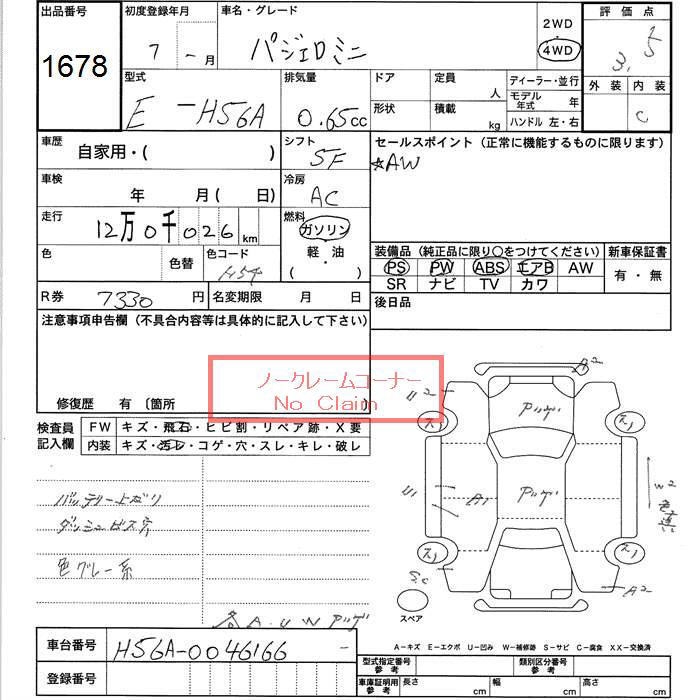 出品番号
1678
初度登録年月
7 - 月
車名・グレード
パジェロミニ
2WD
4WD
評価点
3.5
外装 内装
C
型式
E - H56A
排気量
0.65cc
ドア
定員
人
形状
積載
kg
ディーラー・並行
モデル年式 年
ハンドル 左・右
車歴
自家用・( )
シフト
5F
セールスポイント (正常に機能するものに限ります)
☆AW
車検
年 月( 日)
冷房
AC
走行
12万0千026km
燃料
ガソリン
軽・油
( )
色
色替
色コード
H54
装備品 (純正品に限り○をつけてください)
PS PW ABS エアB AW
SR ナビ TV カワ
新車保証書
有・無
R券 7330円
名変期限 月 日
後日品
注意事項申告欄 (不具合内容等は具体的に記入して下さい)
修復歴 有 〔箇所
ノークレームコーナー
No Claim
検査員記入欄
FW キズ・飛石・ヒビ割・リペア跡・X要
内装 キズ・汚レ・コゲ・穴・スレ・キレ・破レ
バッテリー上がり
ダッシュビス穴
色グレー系
各A.U.Wアリ
A2
U2
アッゲ
アッゲ
スノ
スノ
スノ
スノ
U1
A1
W2
A2
スペア
A-キズ E-エクボ U-凹み W-補修跡 S-サビ C-腐食 XX-交換済
車台番号 H56A-0046166 -
登録番号
型式指定番号 参考
類別区分番号 参考
車庫証明用 参考
長さ cm
幅 cm
高さ cm